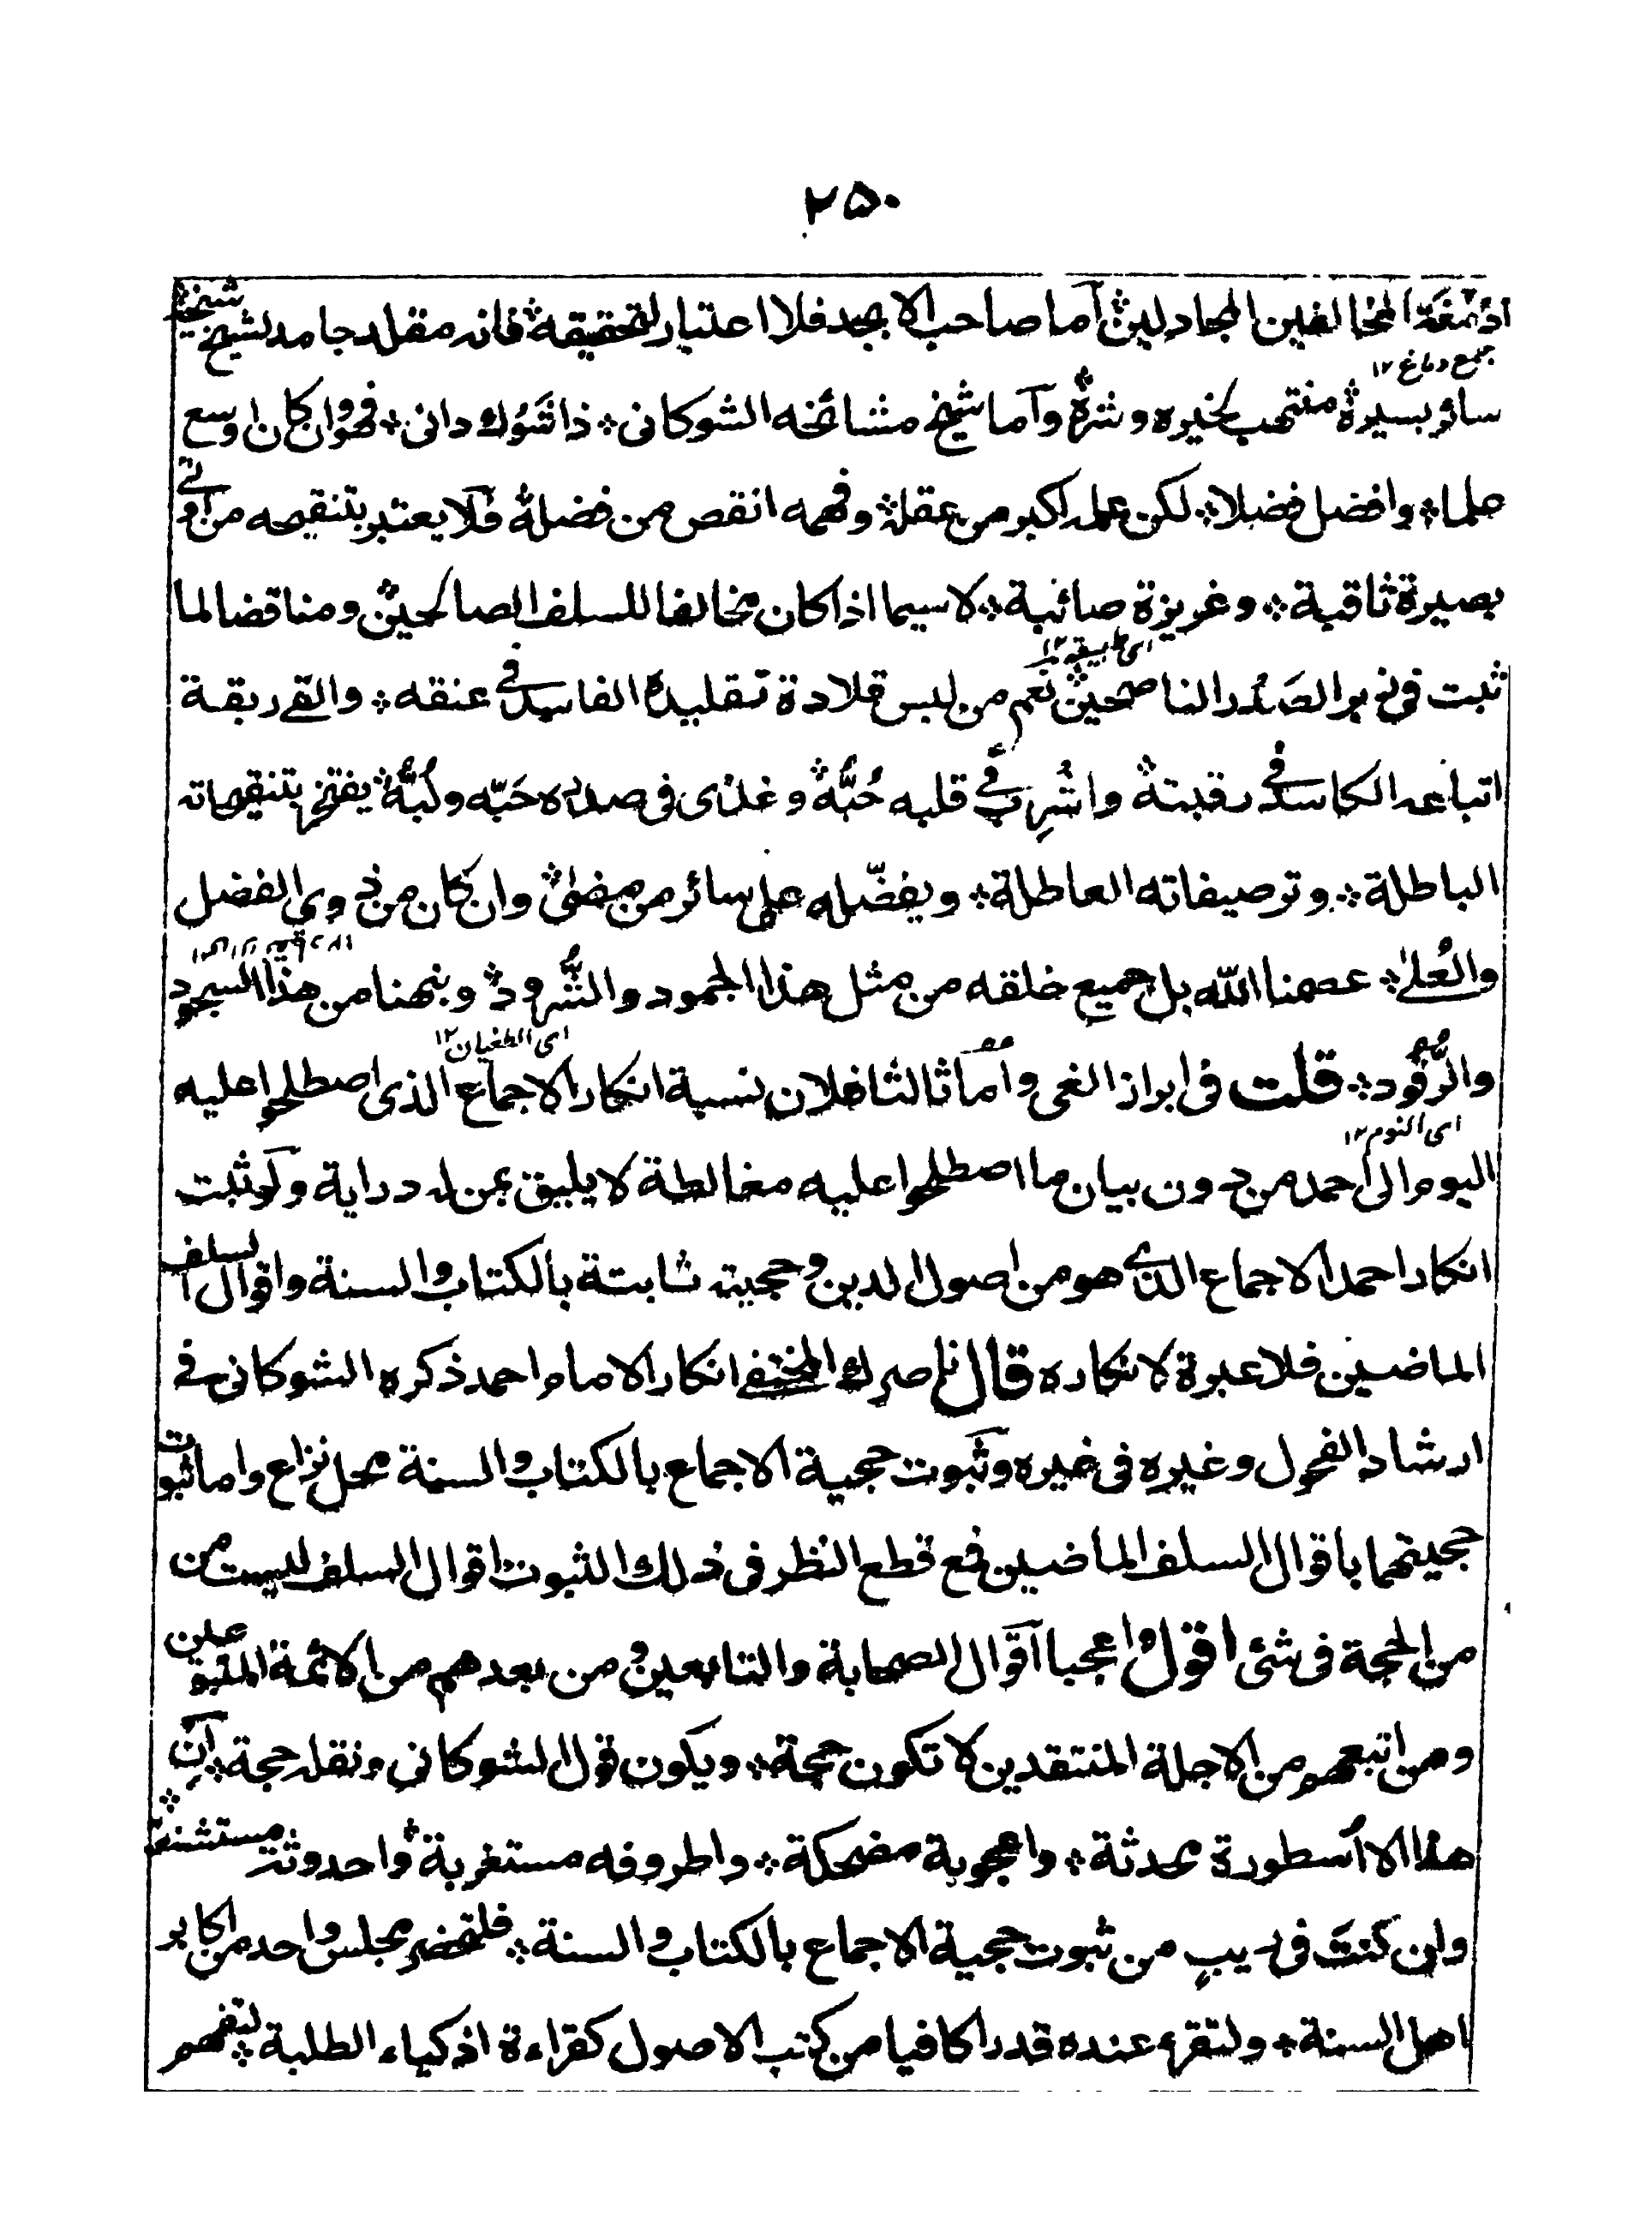 ٢٥٠
ادْمغَة المخالفين المجادلين؞ آما صاحب الابجد فلا اعتبار لتحقيقه؞ فانه مقلد جامد لشيخ شيخه
جمع دماغ ١٢
سائر بسيرة؞ منتهب لخيره وشره؞ وآما شيخ مشائخه الشوكانى؞ ذا شَوْك دانى؞ فهو وان كان اوسع
علما؞ وافضل فضلا؞ لكن علمه اكبر من عقله؞ وفهمه انقص من فضله؞ فلا يعتبر بتنقيحه من اوتى
بصيرة ثاقبة؞ وغريزة صائبة؞ لا سيما اذا كان مخالفا للسلف الصالحين؞ ومناقضا لما
اى طبيعة ١٢
ثبت فى زبر الصَدْر الناصحين؞ نعم من لبس قلادة تقليده الفاسد فى عنقه؞ والقى ربقة
اتباعه الكاسد فى رقبته؞ واشُرِب فى قلبه حُبُّه؞ وغذى فى صدره حَبّه ولُبُّه؞ يفتخر بتنقيحاته
الباطلة؞ وتوصيفاته العاطلة؞ ويفضّله على سائر من مضى؞ وان كان من ذوى الفضل
والعُلى؞ عصمنا الله بل جميع خلقه من مثل هذا الجمود والشُّرود؞ ونبهنا من هذا السجود
اى الطغيان ١٢
والرُّقود؞ قلت فى ابراز الغى وآما ثالثا فلان نسبة انكار الاجماع الذى اصطلحوا عليه
اى النوم ١٢
اليوم الى احمد من دون بيان ما اصطلحوا عليه مغالطة لا يليق بمن له دراية ولو ثبت
انكار احمد الاجماع الذى هو من اصول الدين وحجيته ثابتة بالكتاب والسنة واقوال السلف
الماضين فلا عبرة لانكاره قال ناصرك المختفى انكار الامام احمد ذكره الشوكانى فى
ارشاد الفحول وغيره فى غيره وثبوت حجية الاجماع بالكتاب والسنة محل نزاع واما ثبوت
حجيتهما باقوال السلف الماضين فمع قطع النظر فى ذلك الثبوت اقوال السلف ليست من
من الحجة فى شئ اقول واعجبا آقوال الصحابة والتابعين ومن بعدهم من الائمة المتبوعين
ومن اتبعهم من الاجلة المنتقدين لا تكون حجة؞ ويكون قول الشوكانى ونقله حجة؞ آن
هذا الا اُسطورة محدثة؞ واعجوبة مضحكة؞ واطروفه مستغربة؞ واحدوثة مستشنعة؞
وان كنتَ فى ريبٍ من ثبوت حجية الاجماع بالكتاب والسنة؞ فلتحضر مجلس واحد من اكابر
اهل السنة؞ ولتقرء عنده قدرا كافيا من كتب الاصول كقراءة اذكياء الطلبة؞ لتفهم